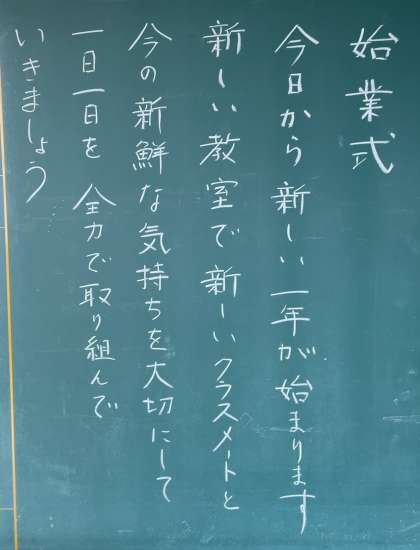 始業式
今日から新しい一年が始まります
新しい教室で新しいクラスメートと
今の新鮮な気持ちを大切にして
一日一日を全力で取り組んで
いきましょう